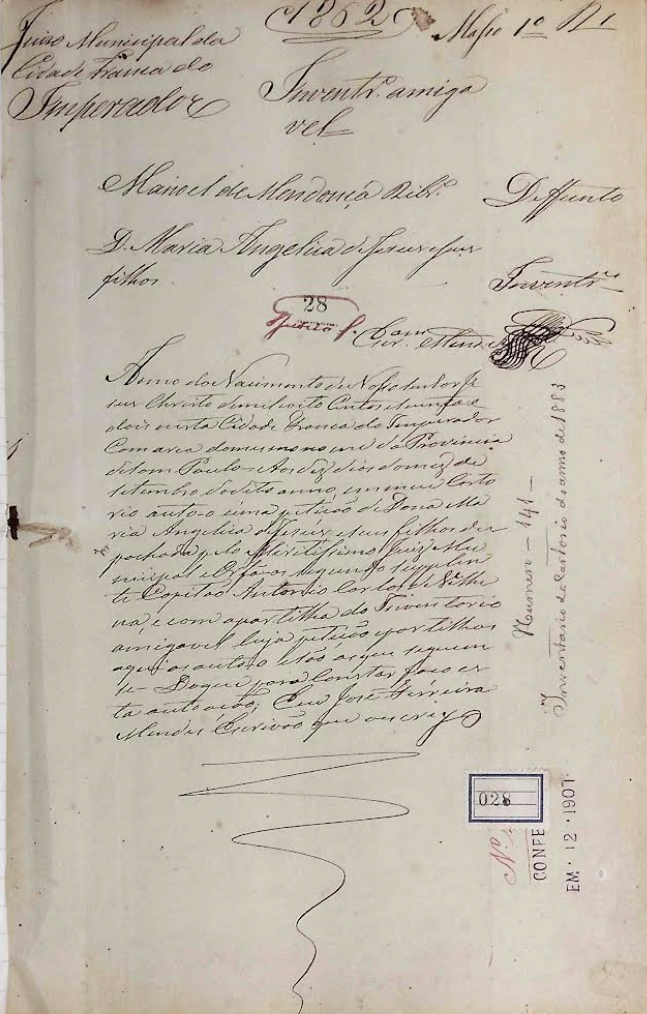 1862
Maço 1º Nº 1
Juizo Municipal da
Cidade Franca do
Imperador
Inventrº amiga
vel
Manoel de Mendonça Ribrº Deffunto
D. Maria Angelica de Jesus e seus
filhos
Inventrᵉˢ
28
Anno do Nacimento de Nosso senhor Je
sus Christo de mil oito Centos e secenta e
dois nesta Cidade Franca do Imperador
Comarca do mesmo nome da Provincia
de Sam Paulo Aos dez dias do mez de
setembro do dito anno, em meu Carto
rio autoo uma petição de Dona Ma
ria Angelica de Jesus e seus filhos des
pachada pelo Meritissimo Juiz Mu
nicipal e Orfaos segundo supplen
te Capitão Antonio
e com a partilha do Inventario
amigavel Cuja petição e partilhas
aqui as autoo e são as que seguem
se Do que para Constar faço es
ta autoação; Eu José Ferreira
Mendes Escrivão que o escrevy
Numero - 141 -
Inventario do Cartorio do anno de 1883
028
Nº
CONFE
EM 12 1901